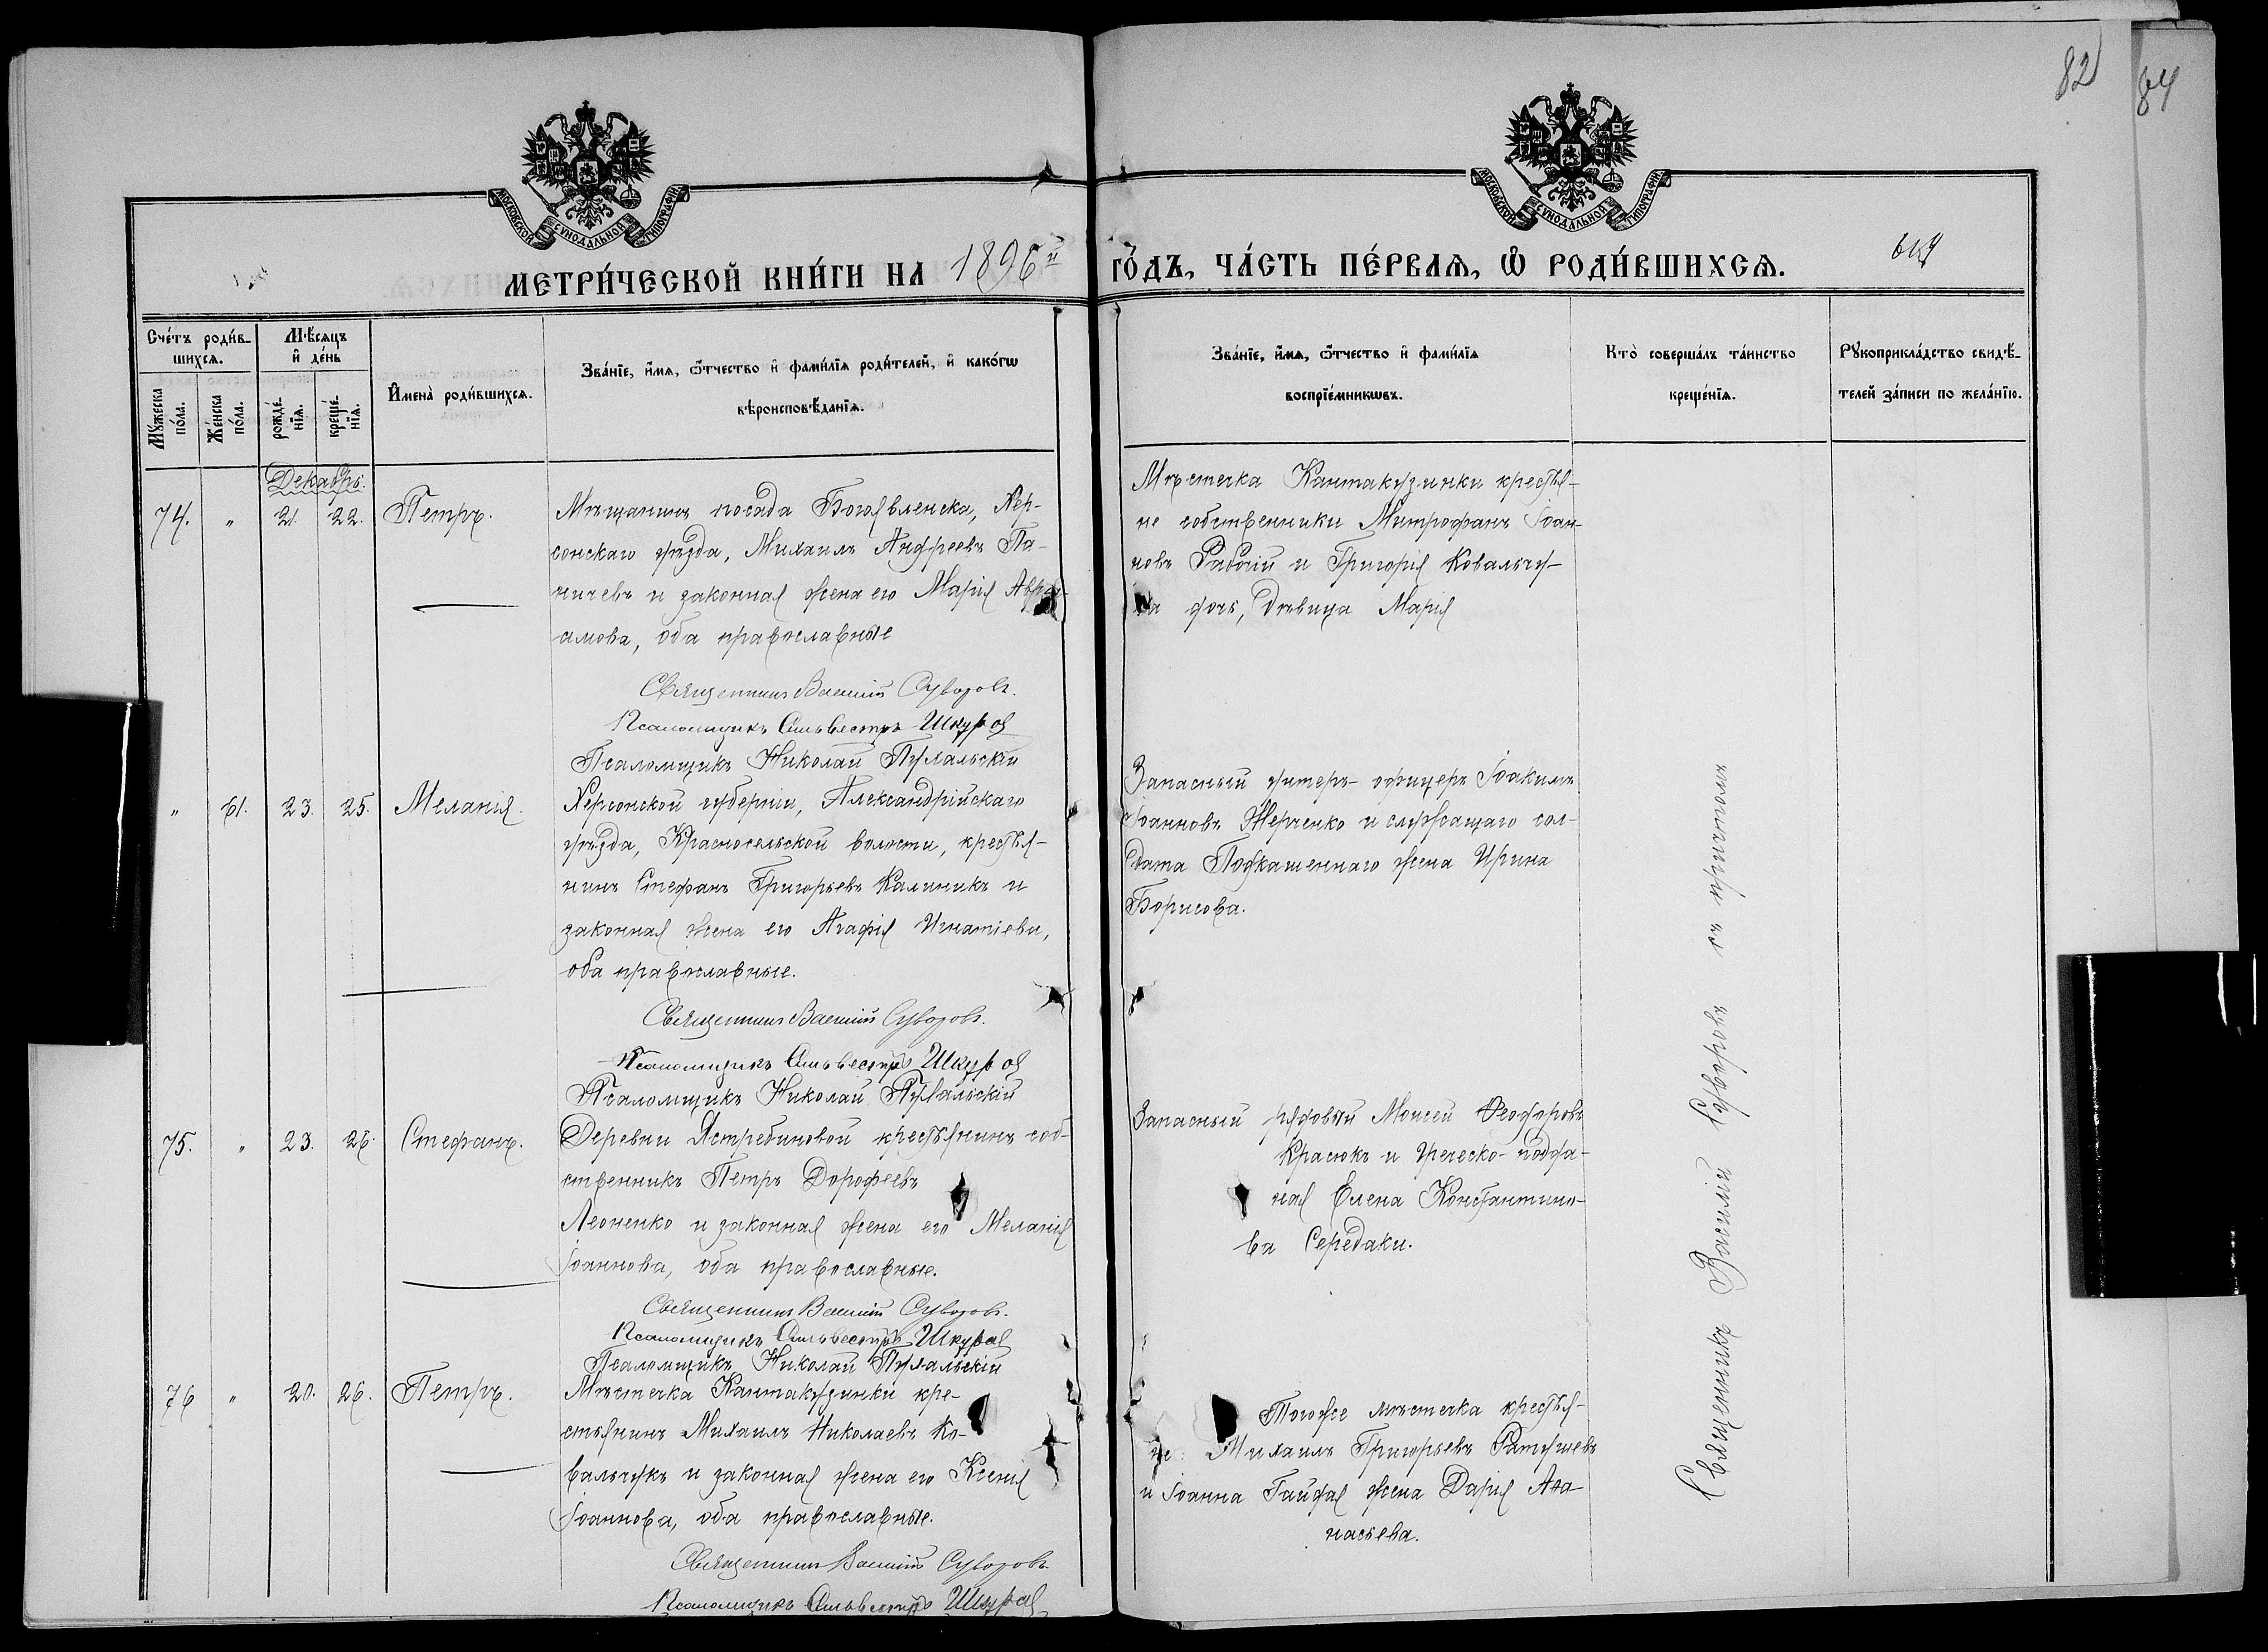 82
84
МОСКОВСКОЙ СѴНОДАЛЬНОЙ ТИПОГРАФІИ
МОСКОВСКОЙ СѴНОДАЛЬНОЙ ТИПОГРАФІИ
МЕТРИ́ЧЕСКОЙ КНИ́ГИ НА 1896й
ГО́ДЪ, ЧА́СТЬ ПЕ́РВАѦ, Ѽ РОДИ́ВШИХСѦ.
Сче́тъ роди́в-
шихсѧ.
Мѣ́сѧцъ
и҆ де́нь
Мꙋ́жеска по́ла.
Же́нска по́ла.
рожде́нїѧ.
креще́нїѧ.
И҆мена̀ роди́вшихсѧ.
Зва́нїе, и҆́мѧ, ѻ҆́тчество и҆ фами́лїѧ роди́телей, и҆ како́гѡ
вѣроисповѣ́данїѧ.
Зва́нїе, и҆́мѧ, ѻ҆́тчество и҆ фами́лїѧ
воспрїе́мникѡвъ.
Кто̀ соверша́лъ та́инство
креще́нїѧ.
Рꙋкоприкла́дство свидѣ́-
телей за́писи по жела́нїю.
Декабрь.
74. " 21. 22. Петръ.
Мѣщанинъ посада Богоявленска, Хер-
сонскаго уѣзда, Михаилъ Андреевъ Па-
ничевъ и законная жена его Марія Авра-
амова, оба православные
Священникъ Василій Суворовъ.
Псаломщикъ Сильвестръ Шкурая
Псаломщикъ Николай Пухальскій
Мѣстечка Кантакузинки крестья-
не собственники Митрофанъ Іоан-
новъ Рабочій и Григорія Ковальчу-
ка дочь, дѣвица Марія
" 61. 23. 25. Меланія.
Херсонской губерніи, Александрійскаго
уѣзда, Красносельской волости, крестья-
нинъ Стефанъ Григорьевъ Калиникъ и
законная жена его Агафія Игнатіева,
оба православные.
Священникъ Василій Суворовъ.
Псаломщикъ Сильвестръ Шкурая
Псаломщикъ Николай Пухальскій
Запасный унтеръ-офицеръ Іоакимъ
Іоанновъ Жерченко и служащаго сол-
дата Подкашеннаго жена Ирина
Борисова.
75. " 23. 26. Стефанъ.
Деревни Ястребиновой крестьянинъ соб-
ственникъ Петръ Дорофеевъ
Леоненко и законная жена его Меланія
Іоаннова, оба православные.
Священникъ Василій Суворовъ.
Псаломщикъ Сильвестръ Шкурая
Псаломщикъ Николай Пухальскій
Запасный рядовый Моисей Ѳеодоровъ
Красюкъ и Греческо-поддан-
ная Елена Константино-
ва Середаки.
76 " 20. 26. Петръ.
Мѣстечка Кантакузинки кре-
стьянинъ Михаилъ Николаевъ Ко-
вальчукъ и законная жена его Ксенія
Іоаннова, оба православные.
Священникъ Василій Суворовъ
Псаломщикъ Сильвестръ Шкурая
Тогоже мѣстечка крестья-
не: Михаилъ Григорьевъ Ратушевъ
и Іоанна Гайдая жена Дарія Аѳа-
насьева.
Священникъ Василій Суворовъ съ причтомъ